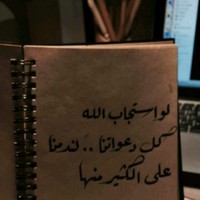 لو إستجاب الله
كل دعواتنا .. لندمنا
على الكثير منها